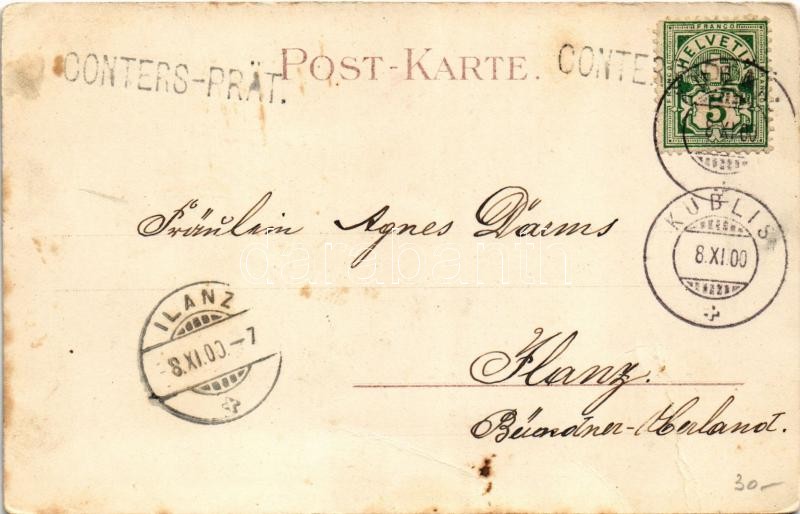 CONTERS-PRÄT. POST-KARTE. CONTERS
FRANCO
HELVETIA
5
KUBLIS
8.XI.00
Fräulein Agnes Darms
darabanth
ILANZ
8.XI.00.-7
Ilanz.
Bündner-Oberland.
30-